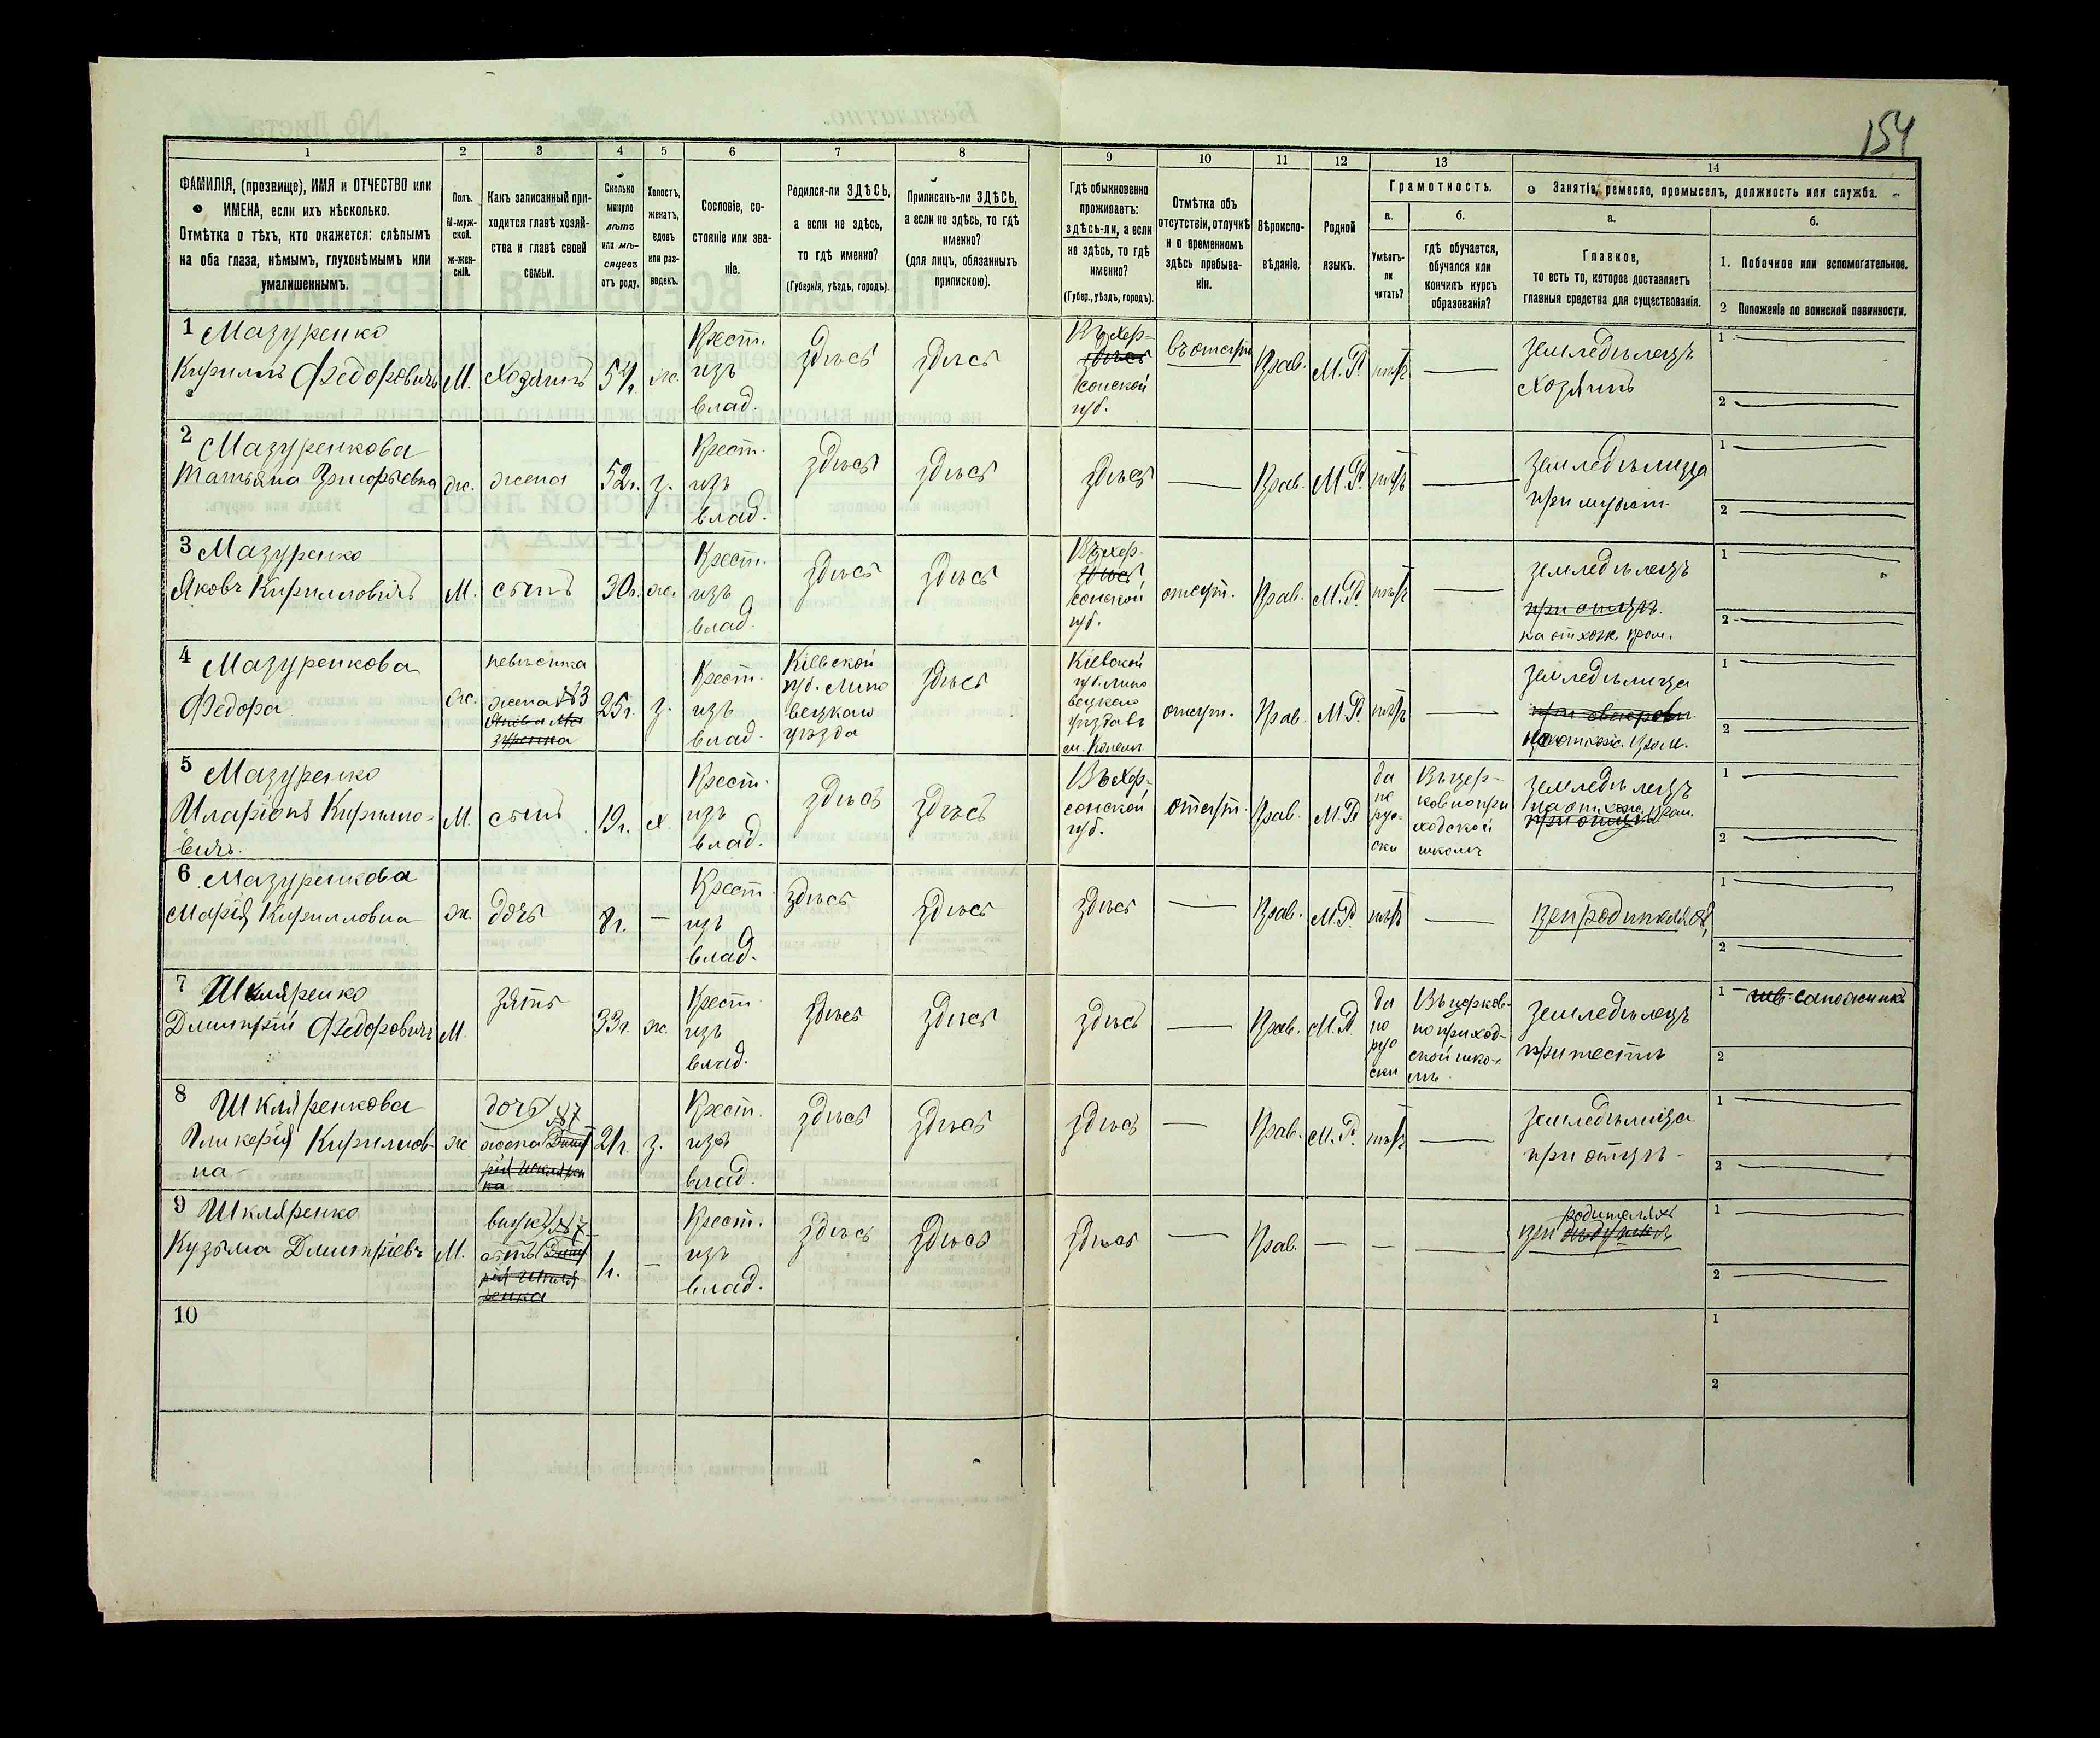 154
1 2 3 4 5 6 7 8 9 10 11 12 13 14
ФАМИЛІЯ, (прозвище), ИМЯ и ОТЧЕСТВО или
ИМЕНА, если ихъ нѣсколько.
Отмѣтка о тѣхъ, кто окажется: слѣпымъ
на оба глаза, нѣмымъ, глухонѣмымъ или
умалишеннымъ.
Полъ.
М-муж-
ской.
ж-жен-
скій.
Какъ записанный при-
ходится главѣ хозяй-
ства и главѣ своей
семьи.
Сколько
минуло
лѣтъ
или мѣ-
сяцевъ
отъ роду.
Холостъ,
женатъ,
вдовъ
или раз-
веденъ.
Сословіе, со-
стояніе или зва-
ніе.
Родился-ли ЗДѢСЬ,
а если не здѣсь,
то гдѣ именно?
(Губернія, уѣздъ, городъ).
Приписанъ-ли ЗДѢСЬ,
а если не здѣсь, то гдѣ
именно?
(для лицъ, обязанныхъ
припискою).
Гдѣ обыкновенно
проживаетъ:
здѣсь-ли, а если
не здѣсь, то гдѣ
именно?
(Губер., уѣздъ, городъ).
Отмѣтка объ
отсутствіи, отлучкѣ
и о временномъ
здѣсь пребыва-
ніи.
Вѣроиспо-
вѣданіе.
Родной
языкъ.
Грамотность.
а.
Умѣетъ-
ли
читать?
б.
гдѣ обучается,
обучался или
кончилъ курсъ
образованія?
Занятіе, ремесло, промыселъ, должность или служба.
а.
Главное,
то есть то, которое доставляетъ
главныя средства для существованія.
б.
1. Побочное или вспомогательное.
2 Положеніе по воинской повинности.
1 Мазуренко
Кириллъ Федоровичъ
М.
хозяинъ
54г.
ж.
Крест.
изъ
влад.
здѣсь
здѣсь
Въ Хер-
здѣсь
сонской
губ.
въ отсут.
Прав.
М. Р.
нѣтъ
Земледѣлецъ
хозяинъ
1
2
2 Мазуренкова
Татьяна Григорьевна
ж.
жена
52г.
з.
Крест.
изъ
влад.
здѣсь
здѣсь
здѣсь
Прав.
М. Р.
нѣтъ
Земледѣлица
при мужѣ
1
2
3 Мазуренко
Яковъ Кирилловичъ
М.
сынъ
30г.
ж.
Крест.
изъ
влад.
здѣсь
здѣсь
Въ Хер-
здѣсь
сонской
губ.
отсут.
Прав.
М. Р.
нѣтъ
земледѣлецъ
при отцѣ.
на отхож. пром.
1
2
4 Мазуренкова
Федора
ж.
невѣстка
жена №3
Якова Ма
зуренка
25г.
з.
Крест.
изъ
влад.
Кіевской
губ. Липо
вецкаго
уѣзда
здѣсь
Кіевской
губ. Липо
вецкаго
уѣзда въ
отсут.
Прав.
М. Р.
нѣтъ
земледѣлица
при свекрови
на отхож. пром.
1
2
5 Мазуренко
Иларіонъ Кирилло-
вичъ.
М.
сынъ
19г.
х.
Крест.
изъ
влад.
здѣсь
здѣсь
Въ Хер-
сонской
губ.
отсут.
Прав.
М. Р.
да
по
рус-
ски
Въ цер-
ковнопри
ходской
школѣ
земледѣлецъ
на отхож. пром.
при отцѣ
1
2
6 Мазуренкова
Марія Кирилловна
ж.
дочь
8г.
Крест.
изъ
влад.
здѣсь
здѣсь
здѣсь
Прав.
М. Р.
нѣтъ
при родителяхъ
1
2
7 Шкляренко
Дмитрій Федоровичъ
М.
зять
33г.
ж.
Крест.
изъ
влад.
здѣсь
здѣсь
здѣсь
Прав.
М. Р.
да
по
рус
ски
Въ церков-
но приход-
ской шко-
лѣ
Земледѣлецъ
при тестѣ
1 сапожникъ
2
8 Шкляренкова
Гликерія Кириллов
на
ж
дочь
жена №7
21г.
з.
Крест.
изъ
влад.
здѣсь
здѣсь
здѣсь
Прав.
М. Р.
нѣтъ
Земледѣлица
при отцѣ
1
2
9 Шкляренко
Кузьма Дмитріевъ
М.
внукъ №7
сынъ
1г.
Крест.
изъ
влад.
здѣсь
здѣсь
здѣсь
Прав.
родителяхъ
при
1
2
10
1
2